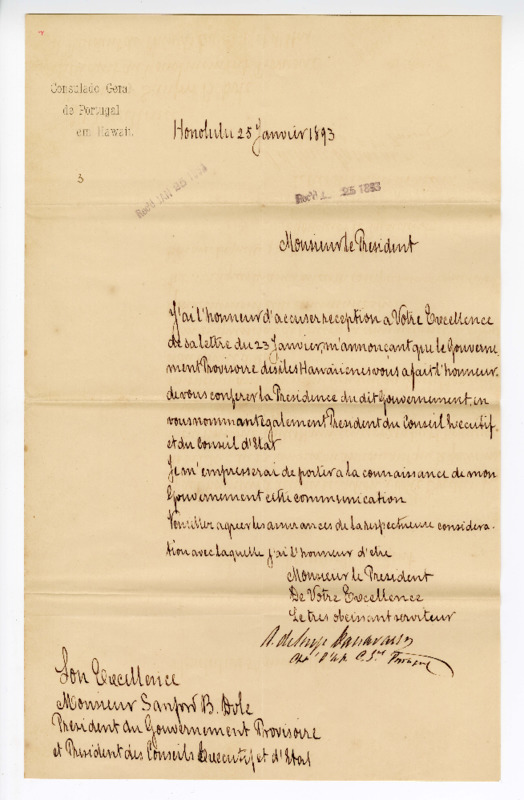 Consulado Geral
de Portugal
em Hawaii.
3
Honolulu 25 Janvier 1893
Rec'd JAN 25
Rec'd 25 1893
Monsieur le President
J'ai l'honneur d'accuser reception a Votre Excellence
de sa lettre du 23 Janvier, m'annonçant que le Gouverne
ment Provisoire des iles Hawaiienes vous a fait l'honneur
de vous conferer la Presidence du dit Gouvernement en
vous nommant egalement President du Conseil Executif
et du Conseil d'Etat
Je m'empresserai de porter a la connaissance de mon
Gouvernement cette communication
Veuillez agreer les assurances de la respectueuse considera-
tion avec laquelle j'ai l'honneur d'etre
Monsieur le President
De Votre Excellence
Le tres obeissant serviteur
A. de Souza Canavarro
Son Excellence
Monsieur Sanford B. Dole
President du Gouvernement Provisoire
et President des Conseils Executif et d'Etat